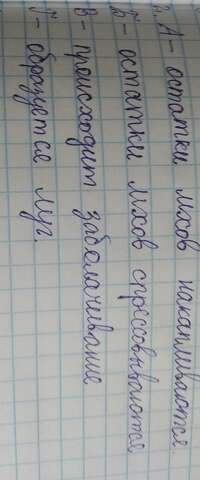 2. А - остатки мхов накапливаются.
Б - остатки мхов спрессовываются
В - происходит заболачивание
Г - образуется луг.